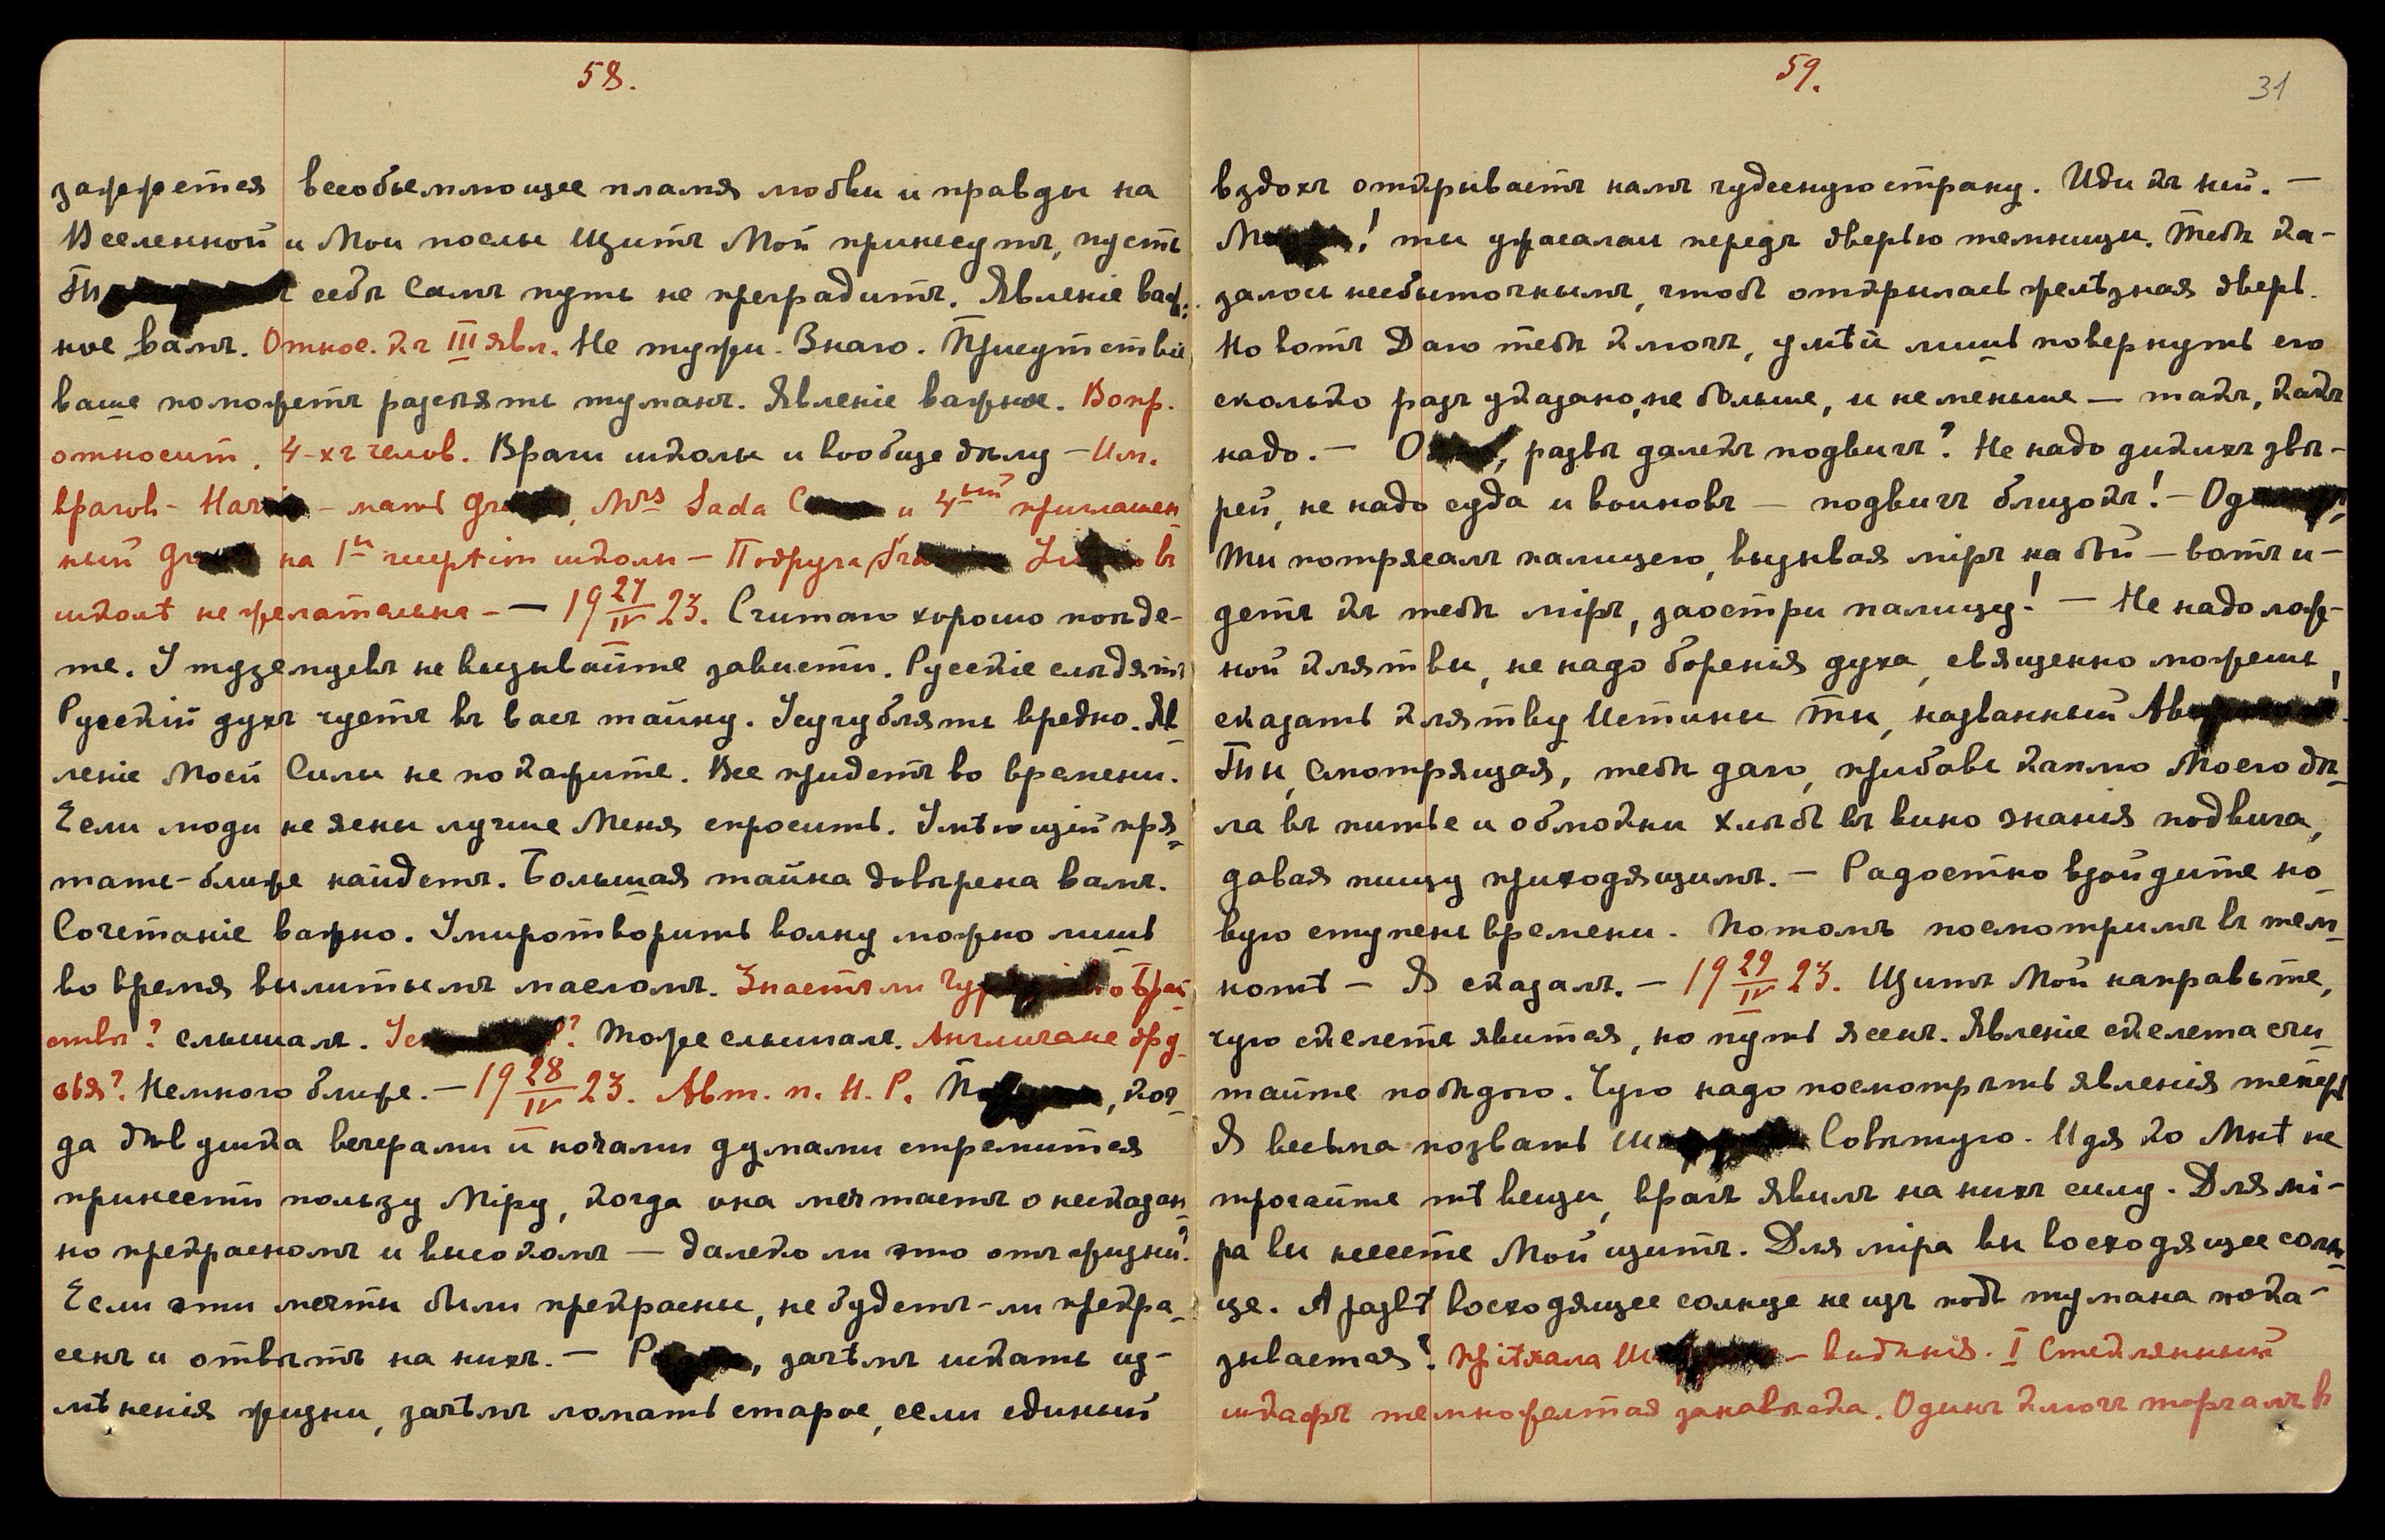 58.
зажжется всеобъемлющее пламя любви и правды на
Вселенной и Мои послы Щитъ Мой принесутъ, пусть
себѣ Самъ путь не преградитъ. Явленіе важ-
ное вамъ. Относ. къ III явл. Не тужи. Знаю. Присутствіе
ваше поможетъ разсѣять туманъ. Явленіе важное. Вопр.
относит. 4-хъ челов. Враги школы и вообще дѣлу – Им.
врагов – – мать Mrs Sada и 4ый приглашен
ный на 1й школы – Подруга въ
школѣ не желательна – — 19 27/IV 23. Считаю хорошо поѣде-
те. У туземцевъ не вызывайте зависти. Русскіе слѣдятъ
Русскій духъ чуетъ въ васъ тайну. Усугублять вредно. Яв
леніе Моей Силы не покажите. Все придетъ во времени.
Если люди не ясны лучше Меня спросить. Умѣющій пря
тать – ближе найдетъ. Большая тайна довѣрена вамъ.
Сочетаніе важно. Умиротворить волну можно лишь
во время вылитымъ масломъ. Знаетъ ли о Брат
ствѣ? слышалъ. Тоже слышалъ. Англичане дру
зья? Немного ближе. — 19 28/IV 23. Авт. п. Н. Р. ког
да дѣвушка вечерами и ночами думами стремится
принести пользу Міру, когда она мечтаетъ о несказан
но прекрасномъ и высокомъ — далеко ли это отъ жизни?
Если эти мечты были прекрасны, не будетъ-ли прекра
сенъ и отвѣтъ на нихъ. — зачѣмъ искать из-
мѣненія жизни, зачѣмъ ломать старое, если единый
59.
31
вздохъ открываетъ намъ чудесную страну. Иди къ ней. —
! ты ужасалась передъ дверью темницы. Тебѣ ка-
залось несбыточнымъ, чтобъ открылась желѣзная дверь.
Но вотъ Даю тебѣ ключъ, умѣй лишь повернуть его
сколько разъ указано, не больше, и не меньше — такъ, какъ
надо. — развѣ далекъ подвигъ? Не надо дикихъ звѣ-
рей, не надо суда и воиновъ — подвигъ близокъ! —
Ты потрясалъ палицею, вызывая міръ на бой — вотъ и-
детъ къ тебѣ міръ, заостри палицу! — Не надо лож-
ной клятвы, не надо боренія духа, священно можешь
сказать клятву Истины ты, названный
Ты, Смотрящая, тебѣ даю, прибавь каплю Моего дѣ
ла въ питье и обмокни хлѣбъ въ вино знанія подвига,
давая пищу приходящимъ. — Радостно взойдите но
вую ступень времени. Потомъ посмотримъ въ тем
нотѣ — Я сказалъ. — 19 29/IV 23. Щитъ Мой направьте,
чую скелетъ явится, но путь ясенъ. Явленіе скелета счи
тайте побѣдою. Чую надо посмотрѣть явленія теперь
Я весьма позвать Совѣтую. Идя ко Мнѣ не
трогайте тѣ вещи, врагъ явилъ на нихъ силу. Для мі-
ра вы несете Мой щитъ. Для міра вы восходящее солн
це. А развѣ восходящее солнце не изъ подъ тумана пока-
зывается? Пріѣхала – видѣнія. I Стеклянный
шкафъ темножелтая занавѣска. Одинъ ключъ торчалъ в